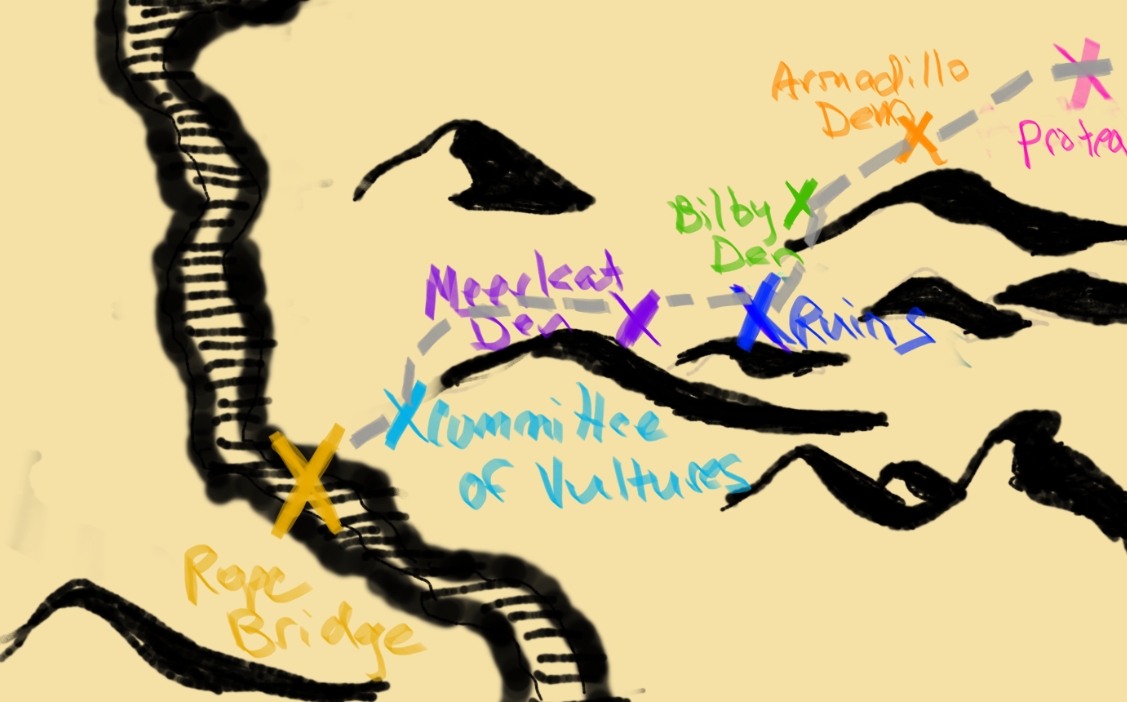 Armadillo
Den
Protea
Bilby
Den
Meerkat
Den
Ruins
Committee
of Vultures
Rope
Bridge